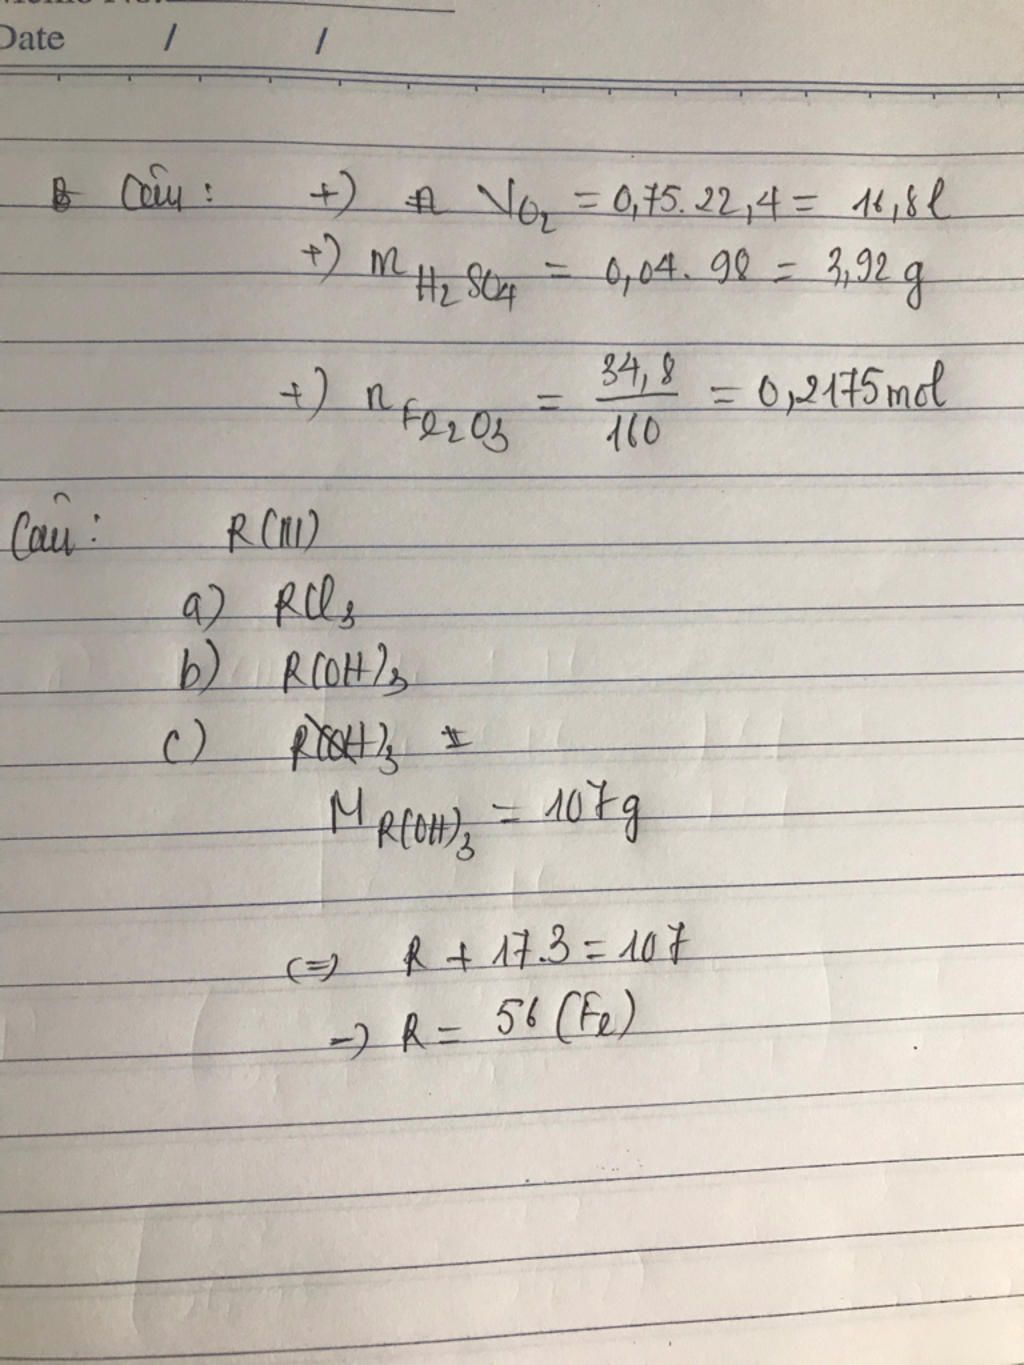 Date / /
Câu : +) V O2 = 0,75. 22,4 = 16,8 l
+) m H2SO4 = 0,04. 98 = 3,92 g
+) n Fe2O3 = 34,8 / 160 = 0,2175 mol
Câu : R(III)
a) RCl3
b) R(OH)3
c) R(OH)3
M R(OH)3 = 107 g
(=) R + 17.3 = 107
-) R = 56 (Fe)